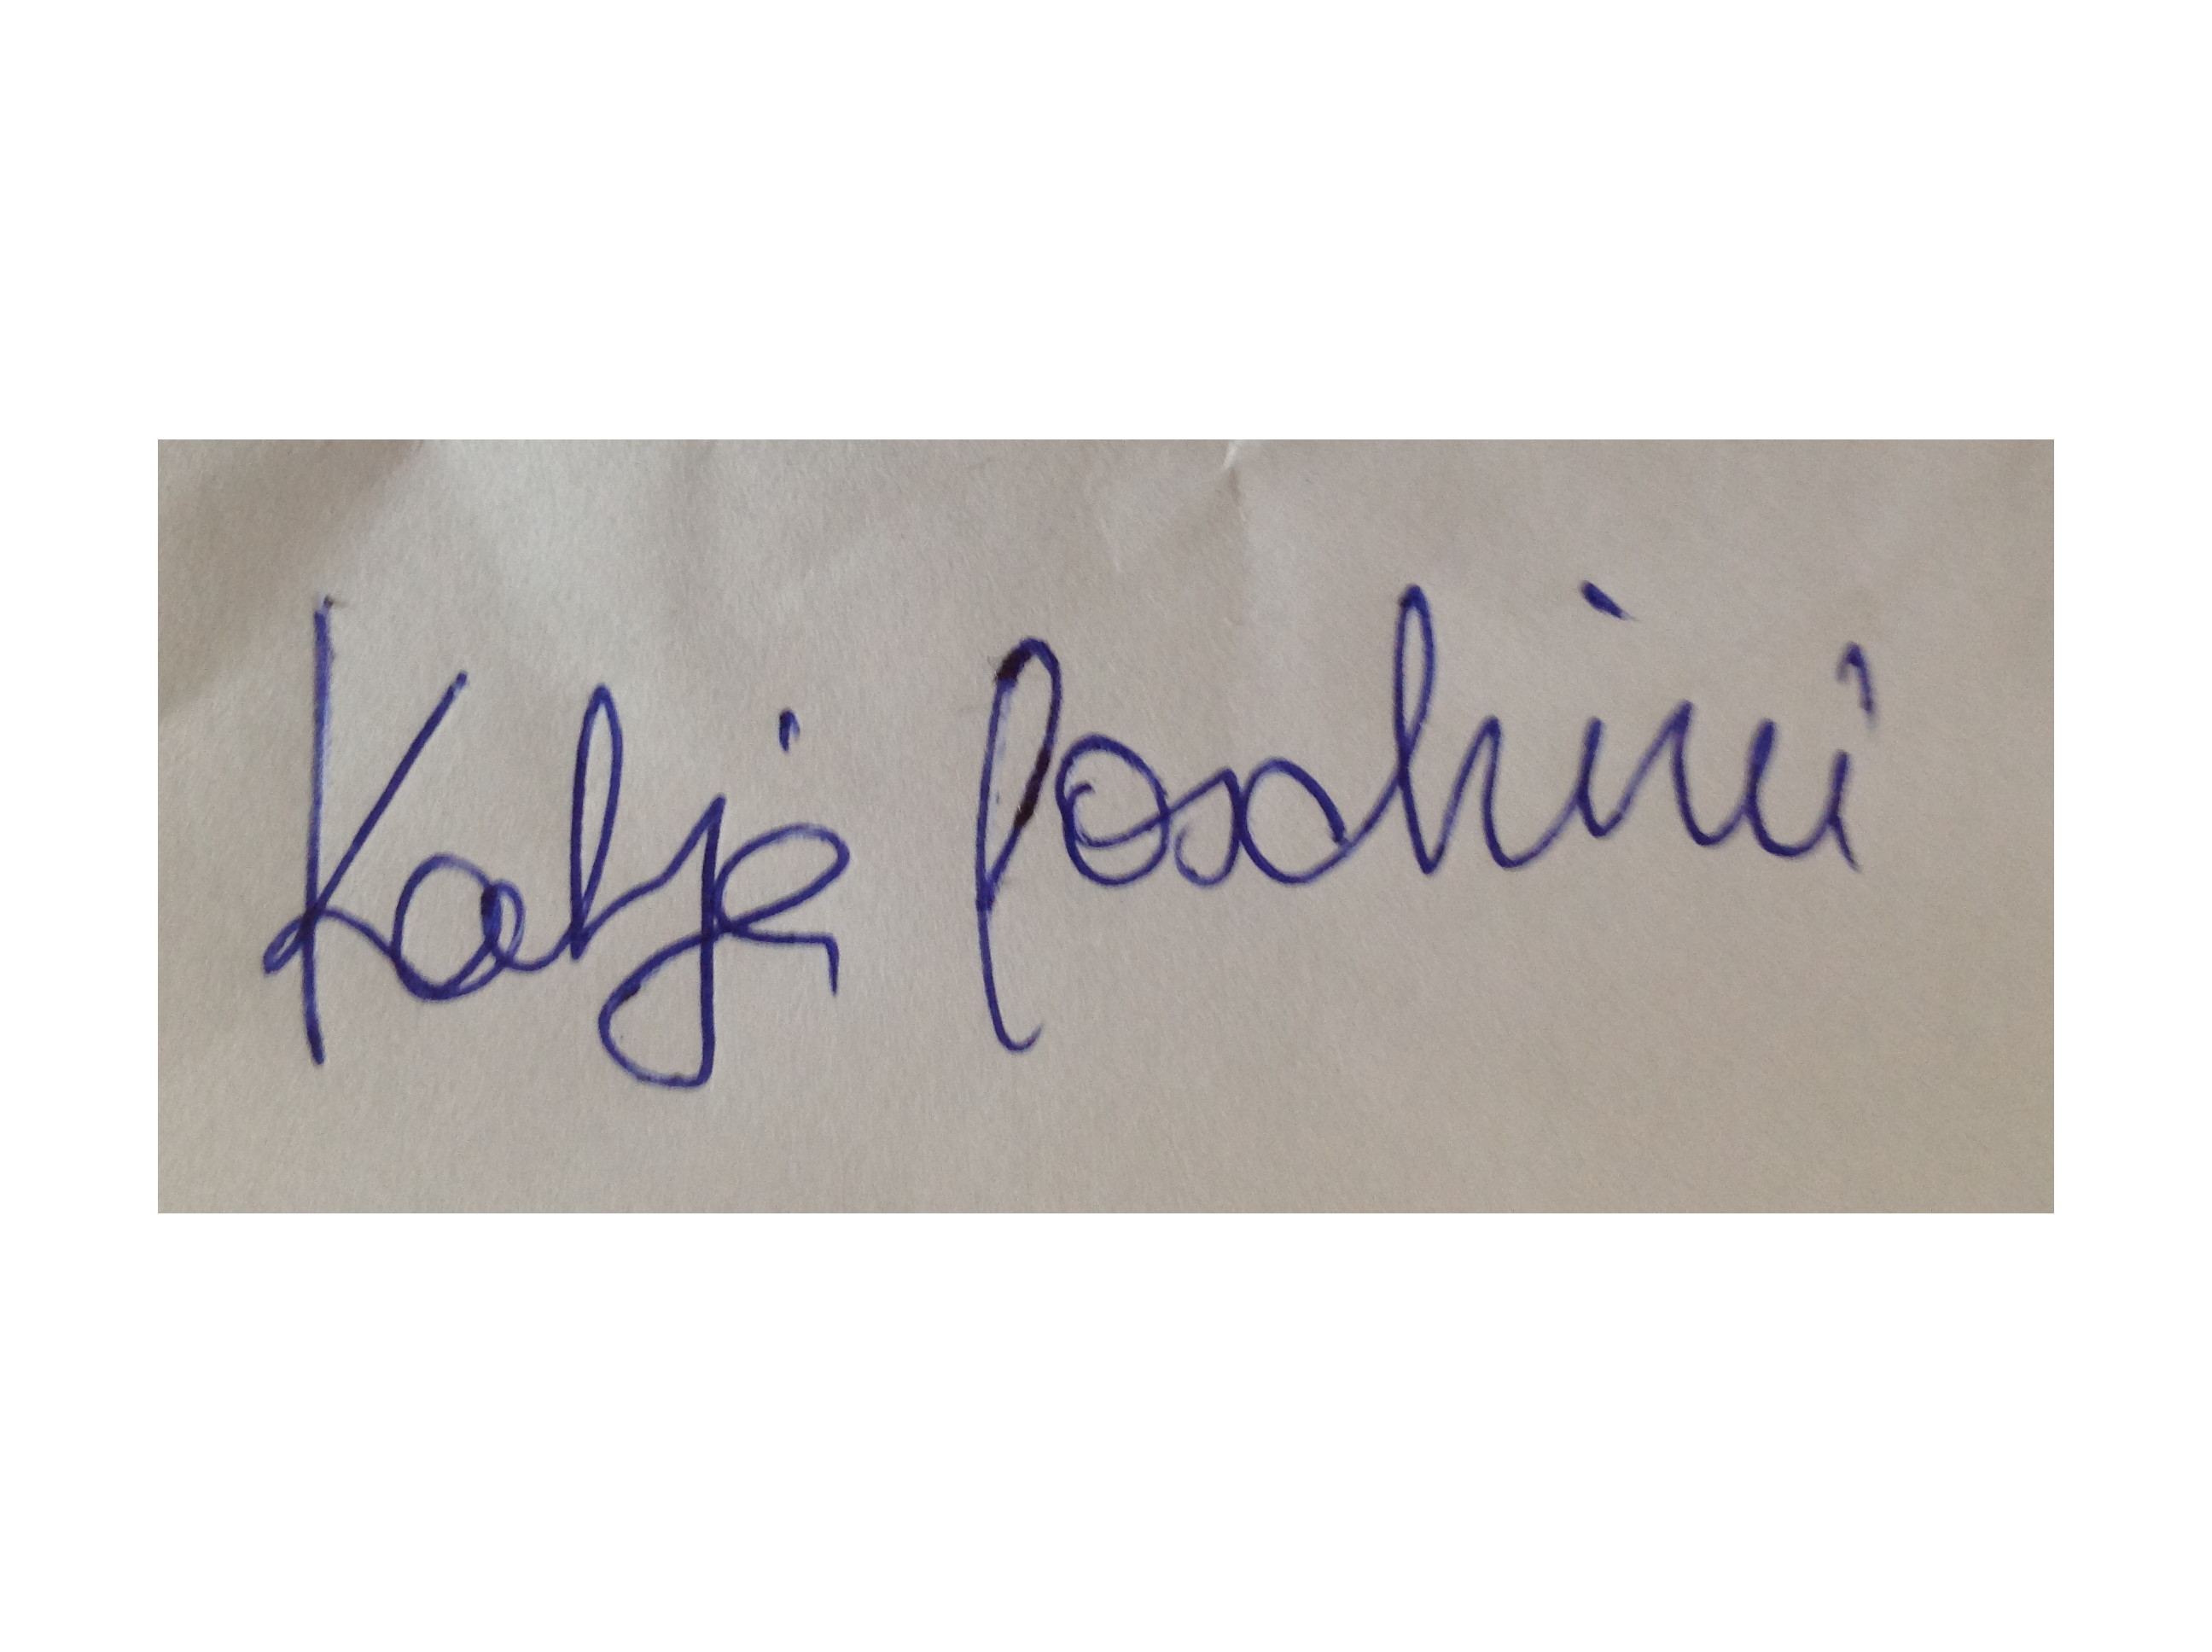 Katja Poschini